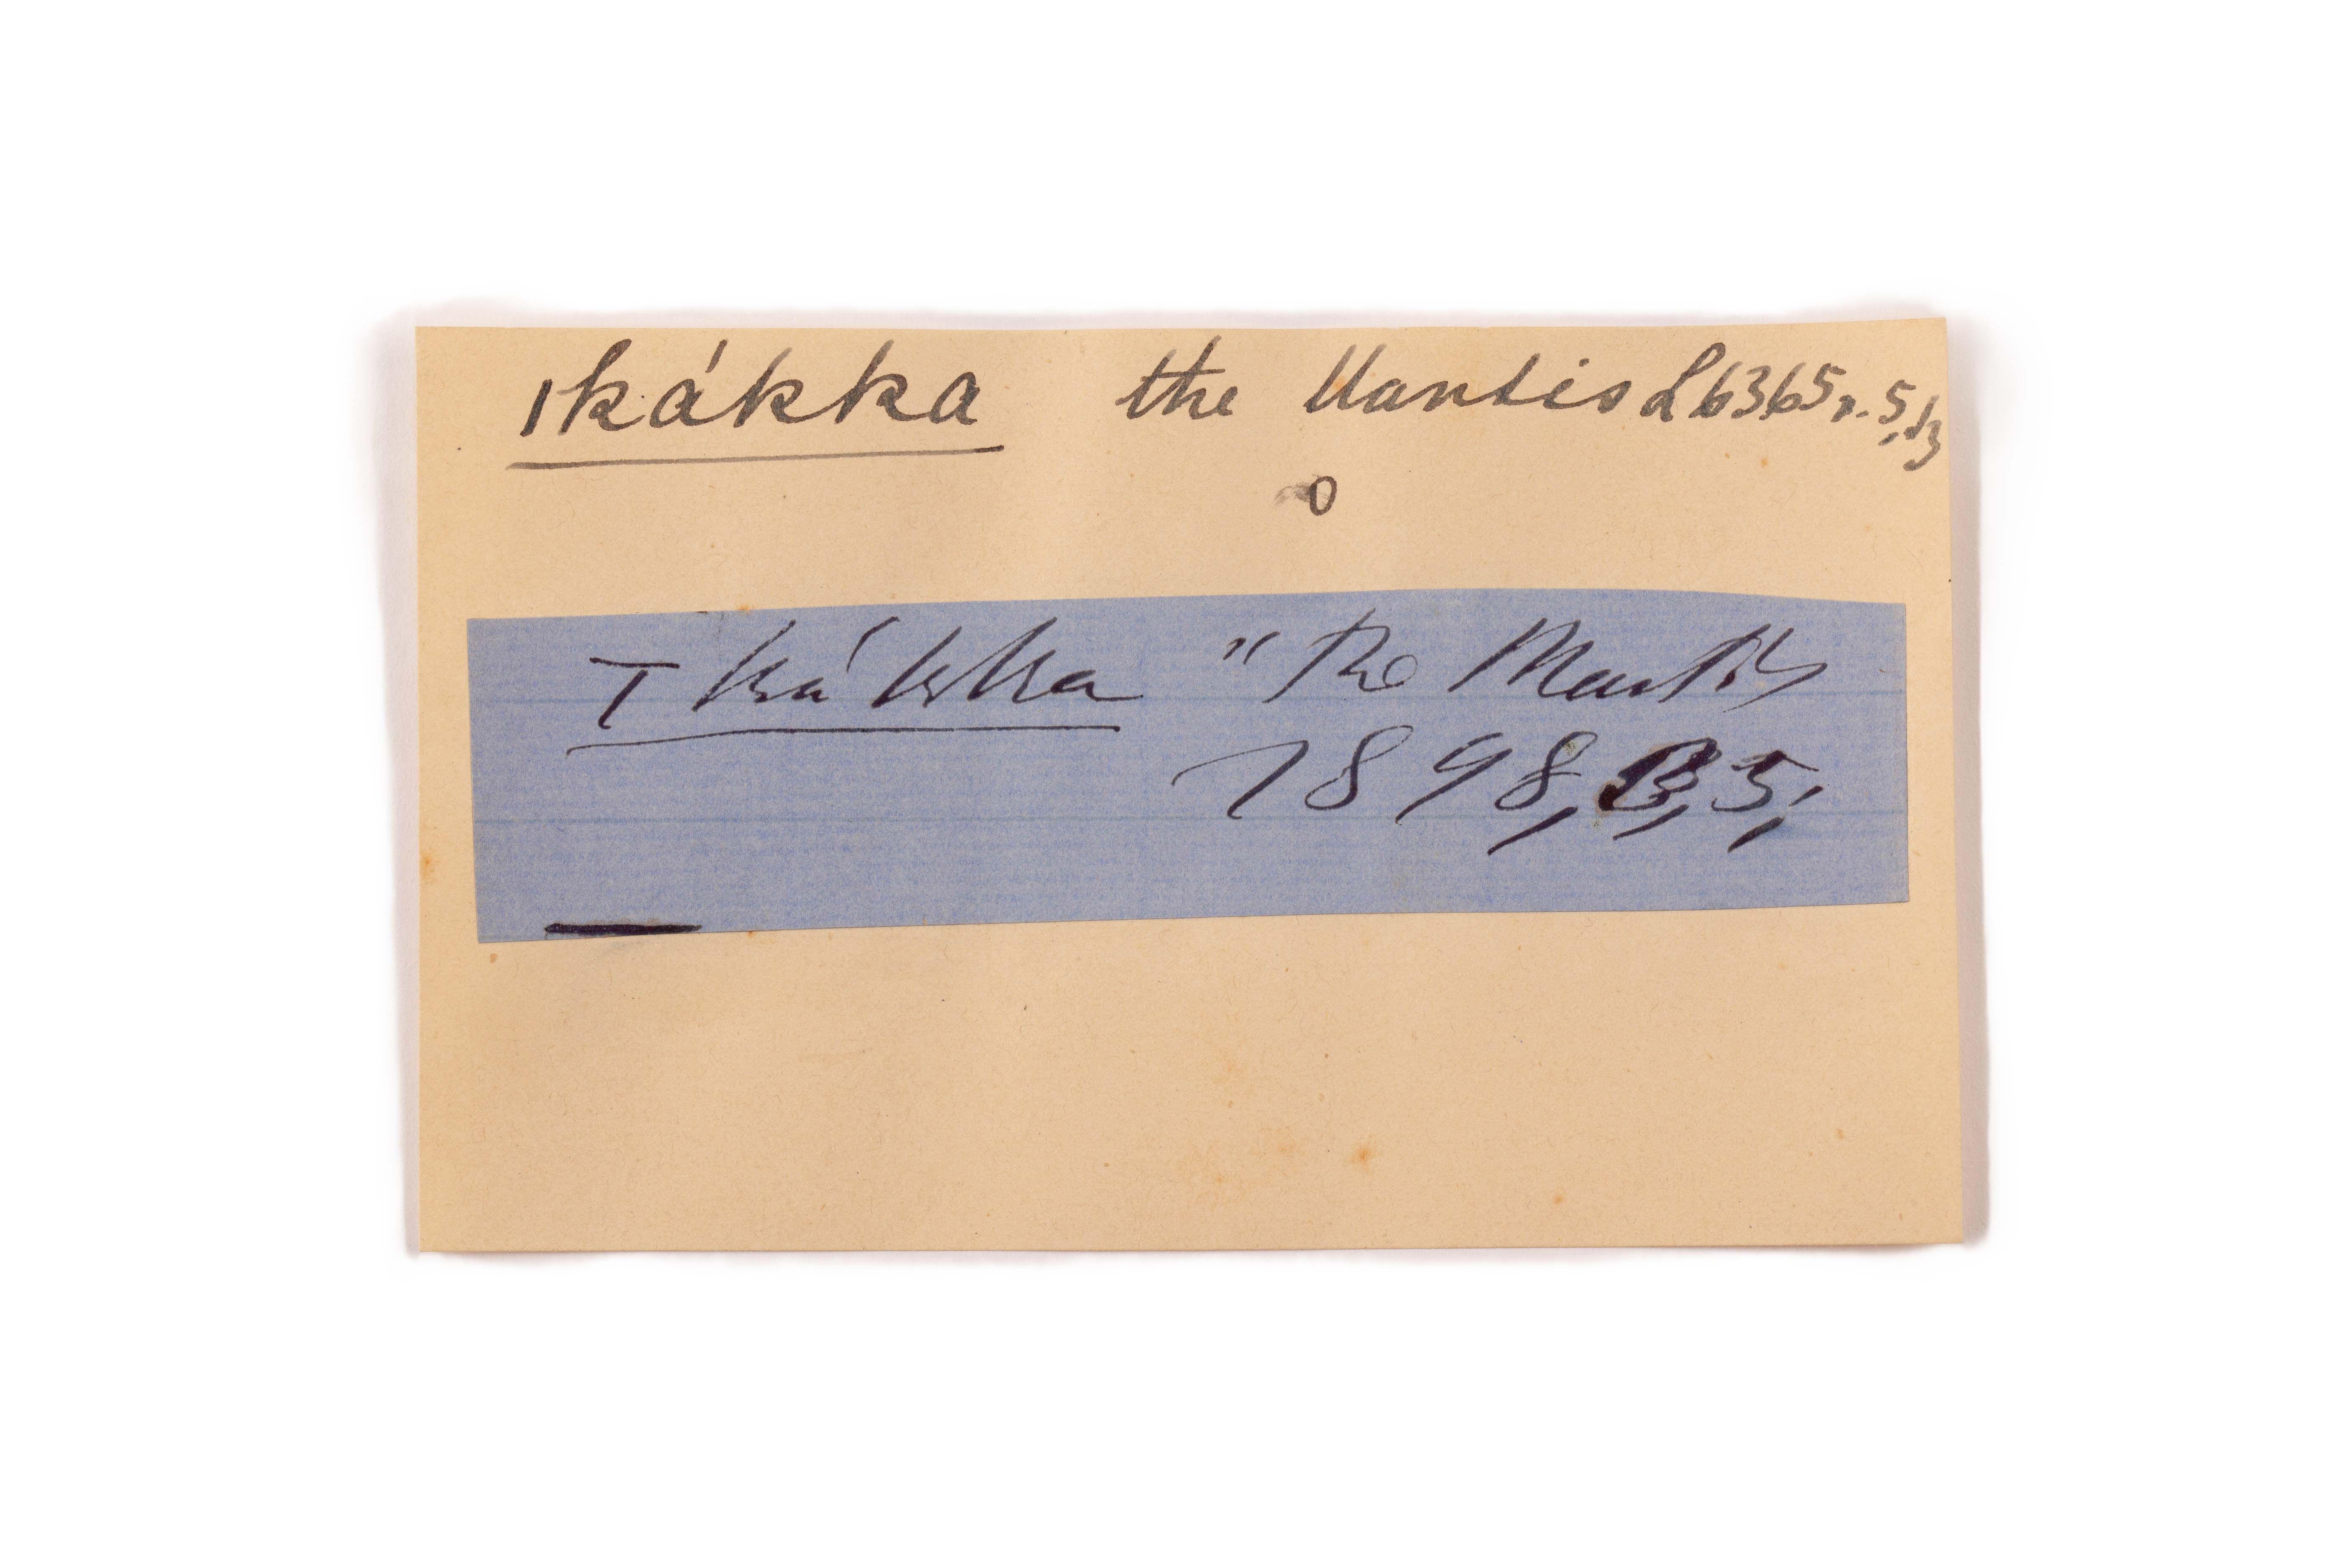 ıkákka the Mantis L 6365 r. 5,
0
T kákka " The Mantis
1898, B, 5,